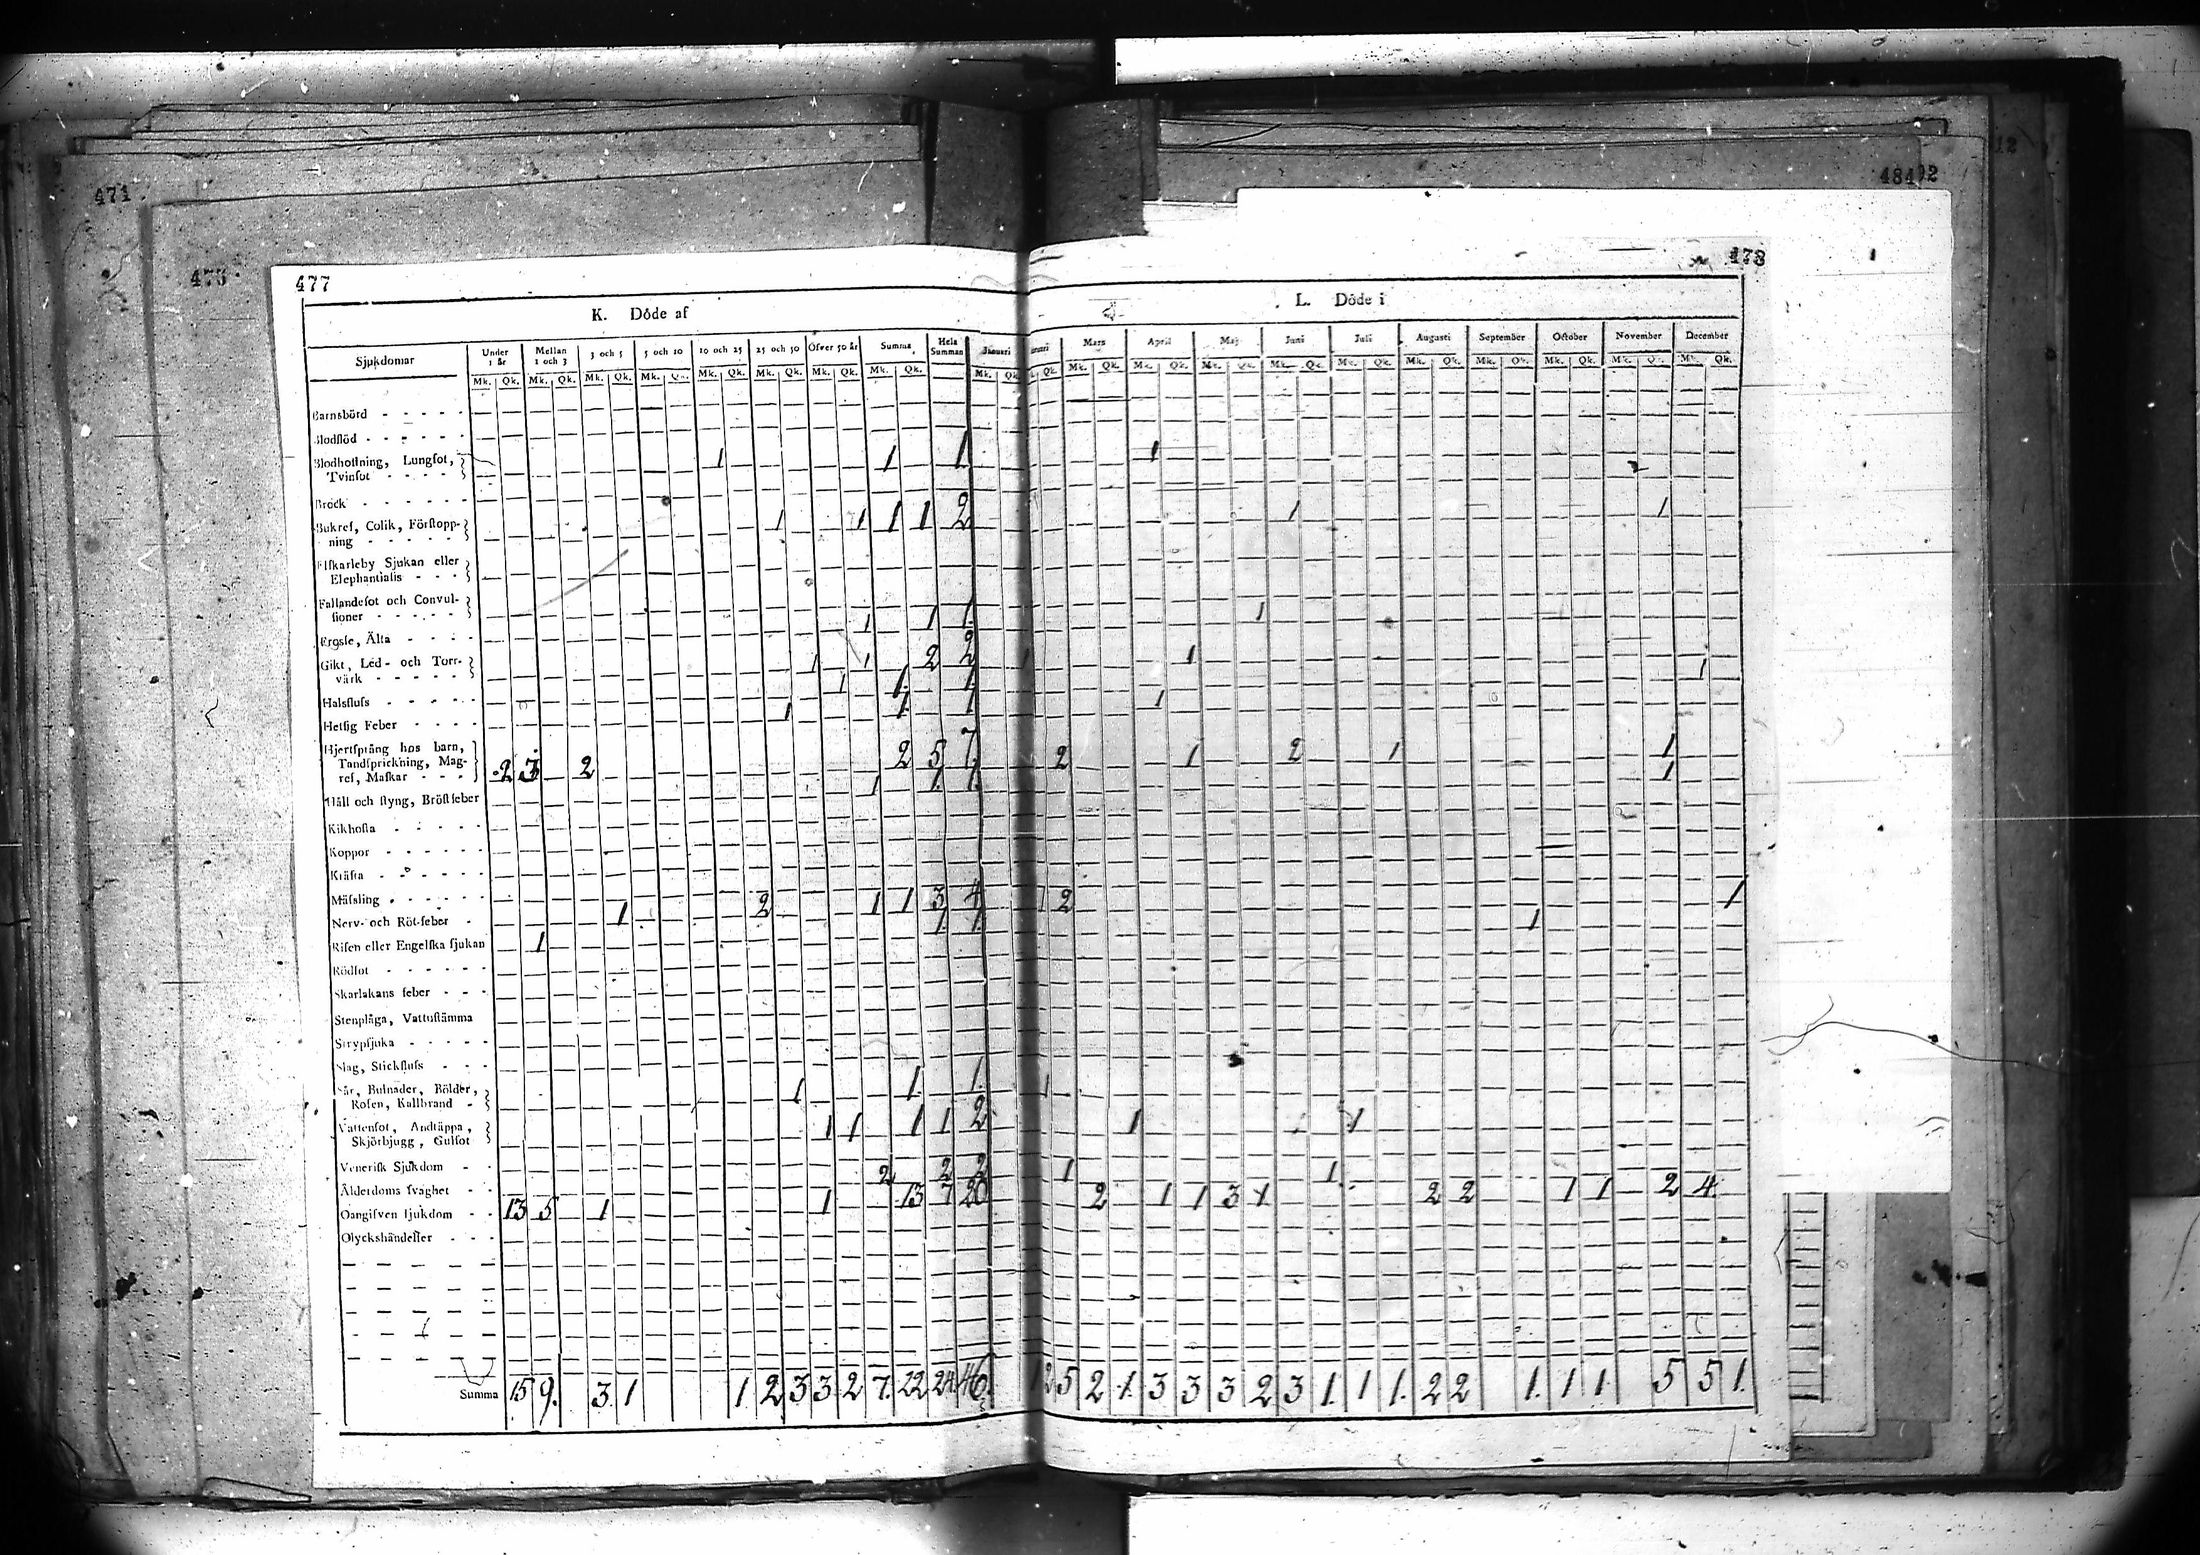 471
484
12
473
477
478
K. Döde af
L. Döde i
Sjukdomar
Under 1 år
Mellan 1 och 3
3 och 5
5 och 10
10 och 25
25 och 50
Öfver 50 år
Summa
Hela Summan
Januari
Mars
April
Maj
Juni
Juli
Augusti
September
October
November
December
Mk. Qk. Mk. Qk. Mk. Qk. Mk. Mk. Qk. Mk. Qk. Mk. Qk. Mk. Qk.
Barnsbörd - - - - -
Blodflöd - - - - - -
Blodhoſtning, Lungſot, 1 1 1 1
Tvinſot - - - -
Bråck - - - - - -
Bukref, Colik, Förſtopp- 1 1 1 1 2 1 1
ning - - - - -
Elfkarleby Sjukan eller
Elephantiaſis - - -
Fallandeſot och Convul-
ſioner - - - - - 1 1 1 1
Froſſe, Älta - - - -
Gikt, Led- och Torr- 1 1 2 2 1 1
värk - - - - - 1 1 1
Halsfluſs - - - - - 1 1 1
Hetſig Feber - - - -
Hjertſprång hos barn, 2 5 7 2 1 2 1 1
Tandſprickning, Mag- 2 3 2
ref, Maſkar - - - 1 1 1 1
Håll och ſtyng, Bröſtfeber
Kikhoſta - - - - -
Koppor - - - - - -
Kräfta - - - - - -
Mäſsling - - - - - 2 1 1 3 4 1 2 1
Nerv- och Röt-feber - 1 1 1 1
Riſen eller Engelſka ſjukan 1
Rödſot - - - - - -
Skarlakans feber - - -
Stenplåga, Vattuſtämma
Strypſjuka - - - - -
Slag, Stickfluſs - - -
Sår, Bulnader, Bölder, 1 1 1 1
Roſen, Kallbrand -
Vattenſot, Andtäppa, 1 1 1 1 2 1 1
Skjörbjugg, Gulſot
Veneriſk Sjukdom - - 2 2 2 1 1
Ålderdoms ſvaghet - - 13 7 20 2 1 1 3 1 2 2 1 1 2 4
Oangifven ſjukdom - - 13 5 1 1
Olyckshändelſer - - -
Summa 15 9. 3 1 1 2 3 3 2 7. 22 24 46. 5 2 1. 3 3 3 2 3 1. 1 1. 2 2 1. 1 1 5 5 1.